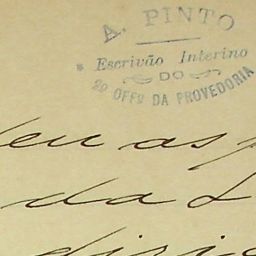 A. PINTO
Escrivão Interino
DO
2º OFFº DA PROVEDORIA
eu as
da L